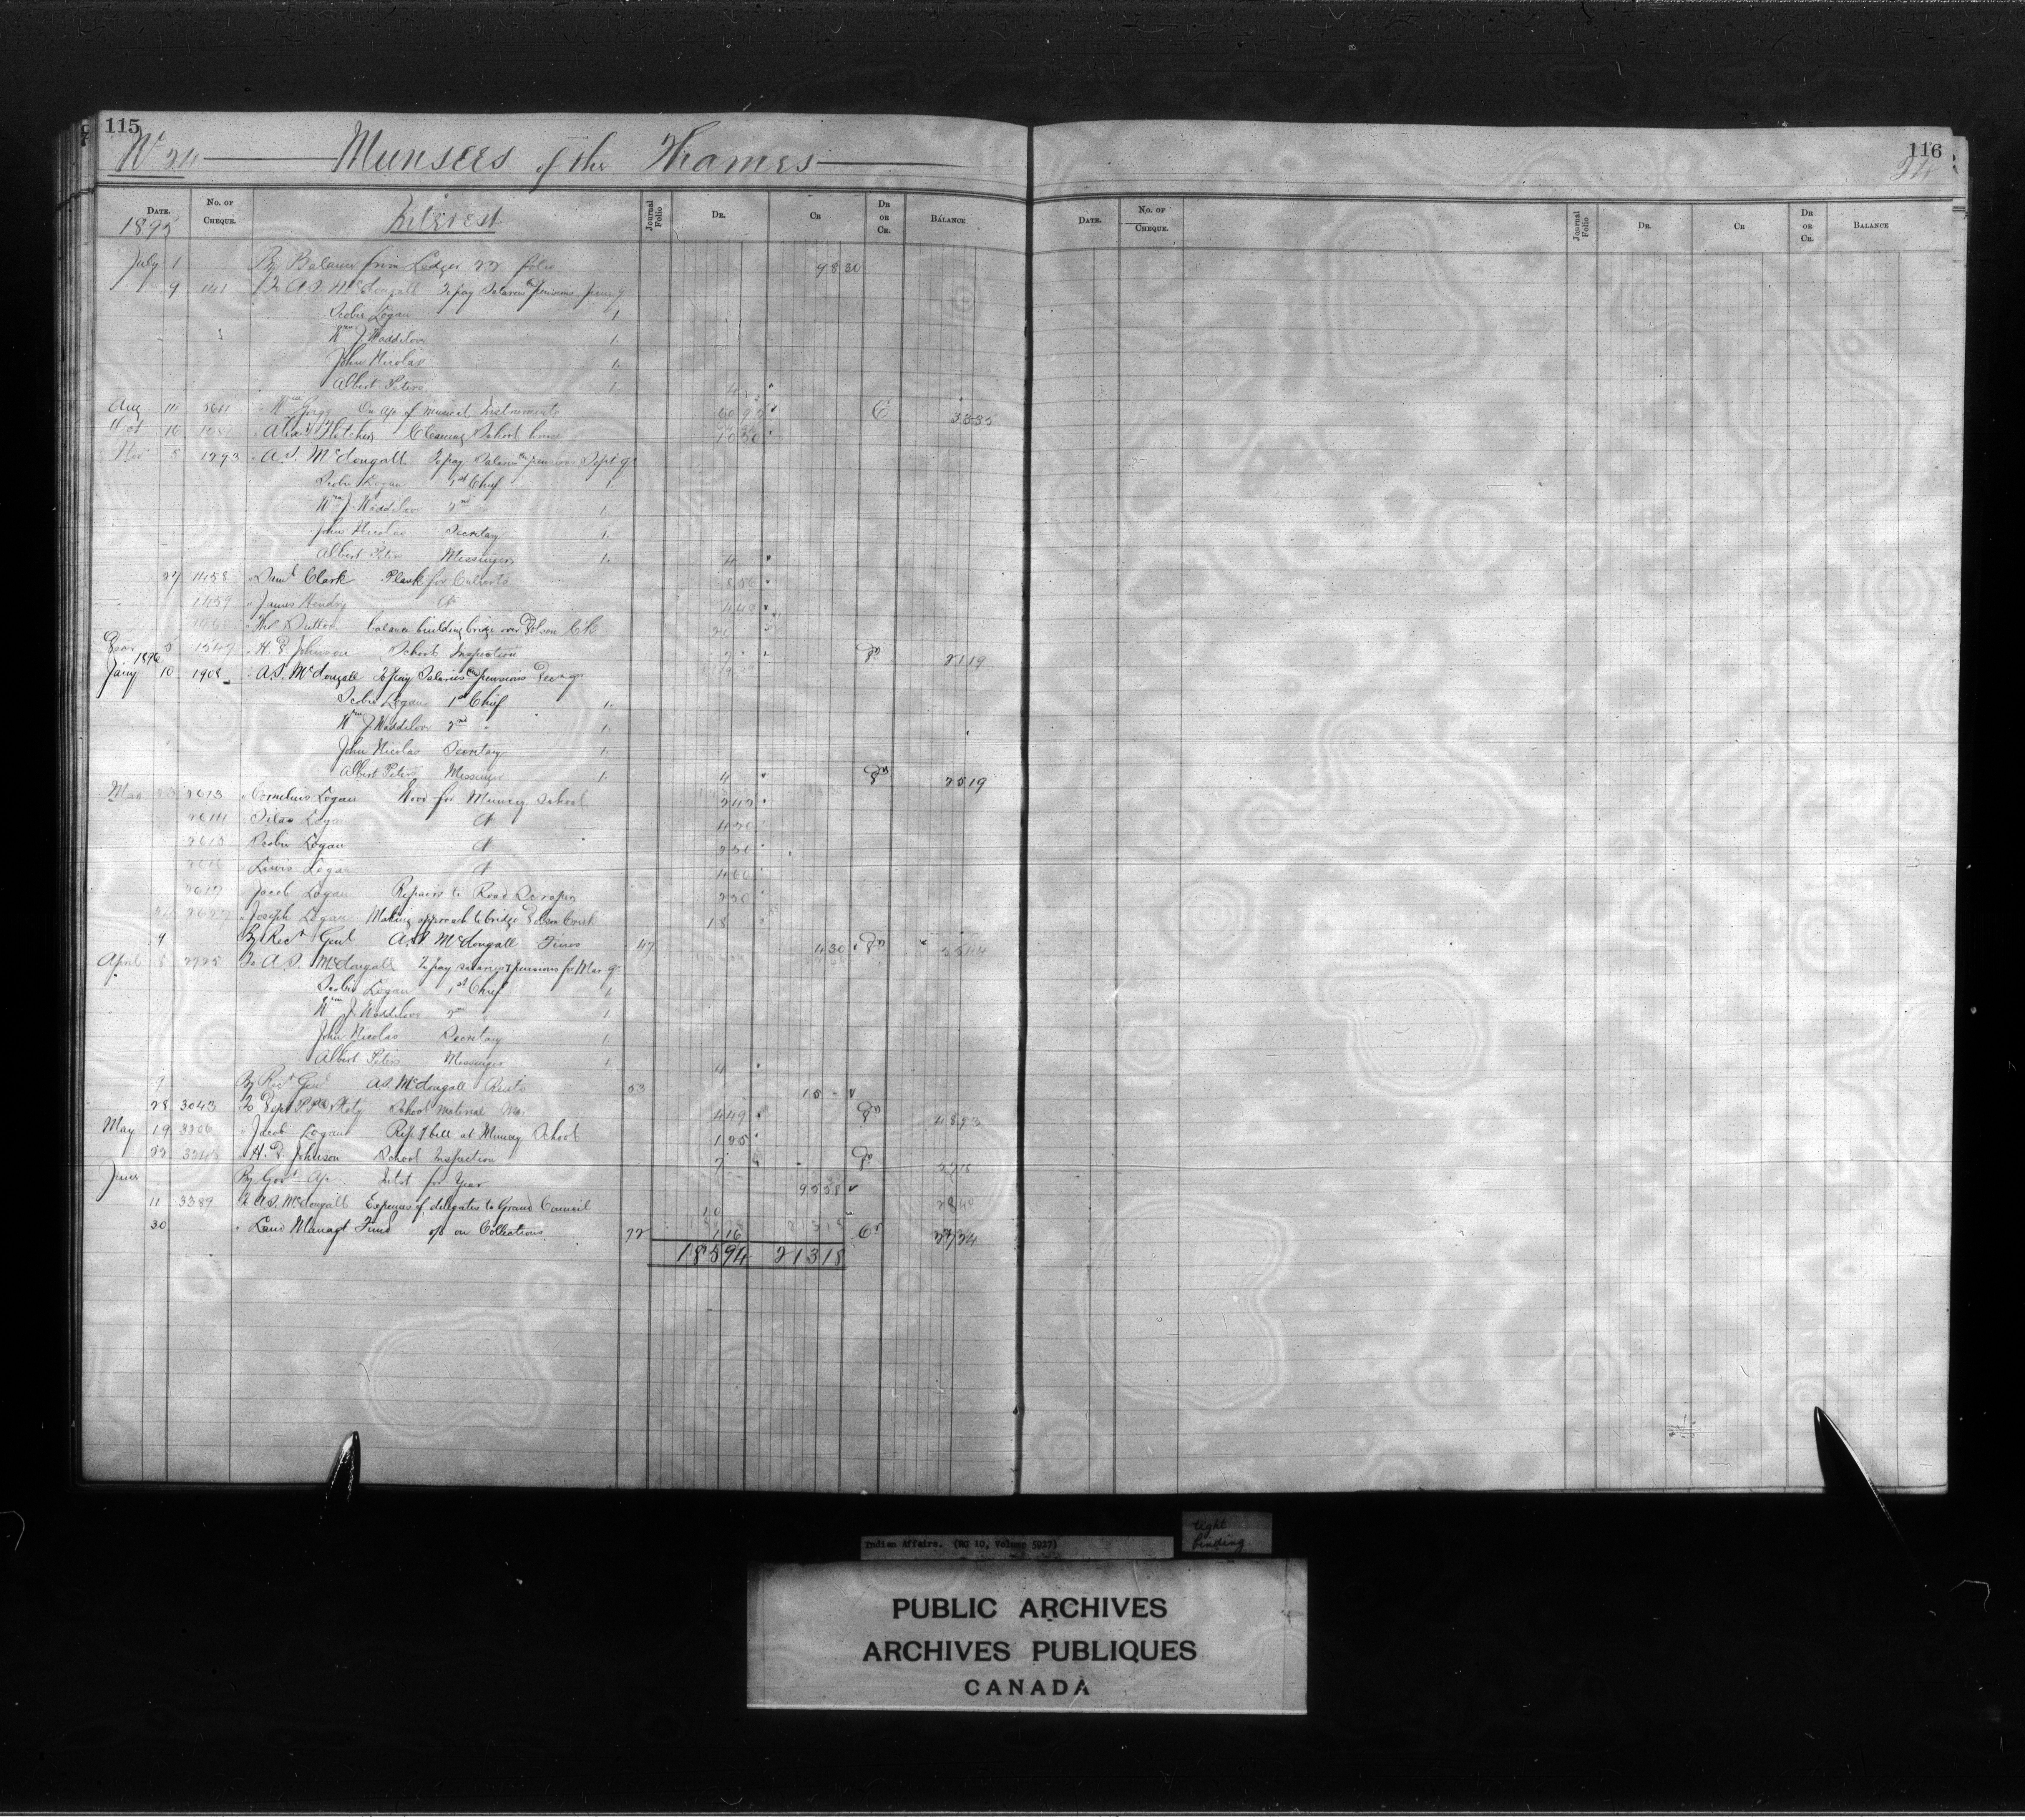 115
No 24 Munsees of the Thames
DATE. No. OF CHEQUE. Interest Journal Folio DR. CR DR OR CR. BALANCE
1895
July 1 By Balance from Ledger folio 98 30
9 141 To A.S. McDougall To pay Salaries & pensions June q
Scobie Logan 1
Wm J Waddilove 1.
John Nicolas 1.
Albert Peters 1. 4
Aug Wm on a/c of musical Instruments 60 95 C 33 35
Oct 16 Alex Fletcher Cleaning School house 10 50
Nov 5 1293 " A.S. McDougall To pay Salaries & pensions Sept q
Scobie Logan 1st Chief 1.
Wm J. Waddilove 2nd " 1.
John Nicolas Secretary 1.
Albert Peters Messenger 1. 4
27 1458 " Saml Clark Plank for Culverts
1459 " James Hendry do 4 48
" Dutton balance building bridge over Dolson Ck
Decr 5 1547 " H. D Johnson School Inspection Dr 21 19
1896
Jany 10 1908 " A.S. McDougall To pay Salaries & pensions Dec q
Scobie Logan 1st Chief 1.
Wm J Waddilove 2nd " 1.
John Nicolas Secretary 1.
Albert Peters Messenger 1. 4 Dr 25 19
Mar 23 2613 " Cornelius Logan Wood for Muncey School 2 42
2614 " Silas Logan do 4 50
2615 " Scobie Logan do 2 50
2616 " Lewis Logan do 4 60
2617 " Jacob Logan Repairs to Road Scraper 2 50
2627 " Joseph Logan Making approach to bridge Dolson Creek 18
9 By Rect Genl A.S. McDougall Fines 47 4 30 Dr 55 44
April 8 2725 To A.S. McDougall To pay salaries & pensions for Mar q
Scobie Logan 1st Chief 1
Wm J. Waddilove 2nd " 1.
John Nicolas Secretary 1
Albert Peters Messenger 1. 4
9 By Rect Genl A.S. McDougall Rents 53 15 -
28 3043 To Dept P.P. & Staty School material Mar 4 49 Dr 48 93
May 19 3206 " Jacob Logan Rep of bell at Muncey School 1 25
22 3248 " H. D. Johnson School Inspection Dr
June By Govt a/c Intst for Year 95 58 28 40
11 3389 To A.S. McDougall Expenses of delegates to Grand Council 10
30 " Land Managt Fund % on Collections 72 1 16 Cr 27 24
185 94 213 18
116
24
DATE. No. OF CHEQUE. Journal Folio DR. CR DR OR CR. BALANCE
Indian Affairs. (RG 10, Volume 5927)
tight binding
PUBLIC ARCHIVES
ARCHIVES PUBLIQUES
CANADA